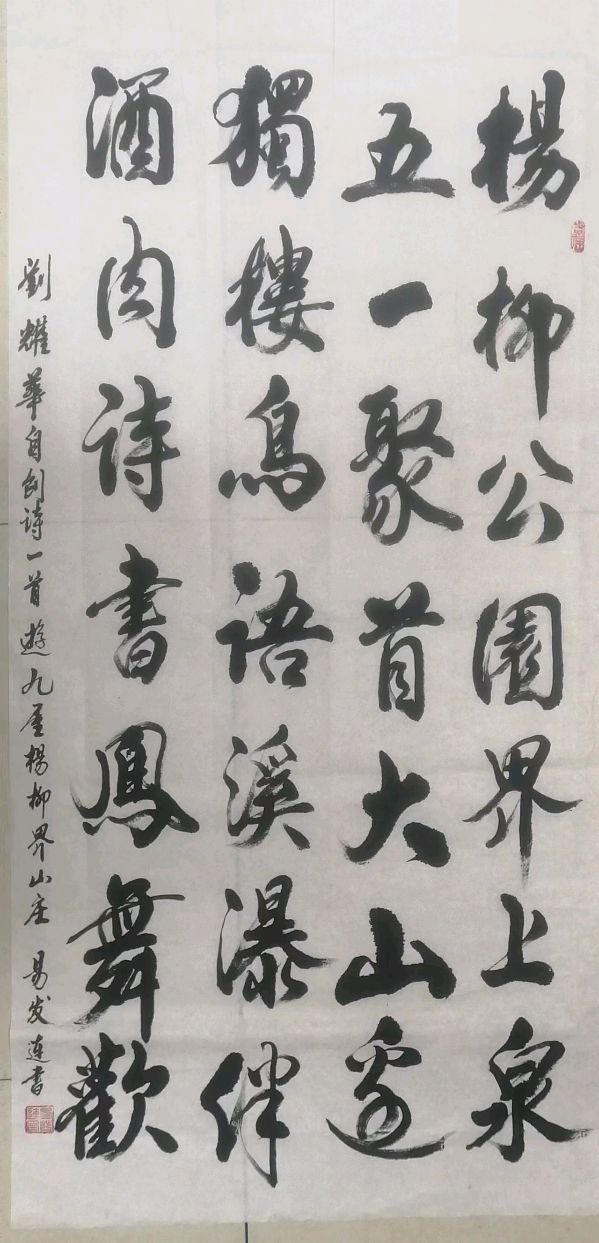 楊柳公園界上泉
五一聚首大山邊
獨樓鳥語溪瀑伴
酒肉诗書鳳舞歡
劉耀華自创诗一首遊九屋楊柳界山庄 易发莲書